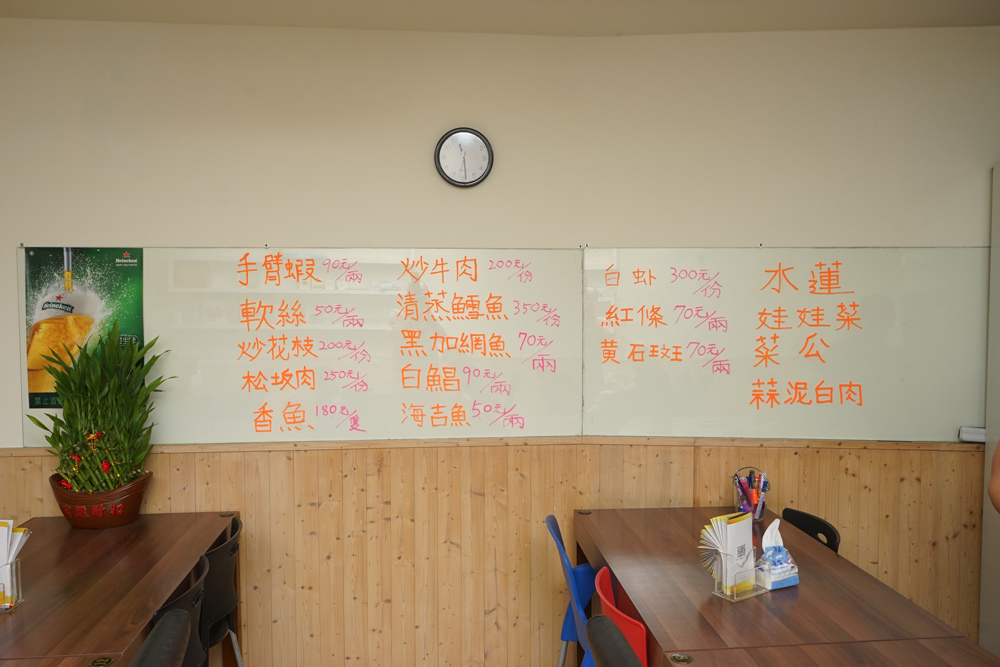 Heineken
Heineken
手臂蝦 90元/兩
軟絲 50元/兩
炒花枝 200元/份
松坂肉 250元/份
香魚 180元/隻
炒牛肉 200元/份
清蒸鱈魚 350元/份
黑加網魚 70元/兩
白鯧 90元/兩
海吉魚 50元/兩
白虾 300元/份
紅條 70元/兩
黃石斑 70元/兩
水蓮
娃娃菜
菜公
蒜泥白肉